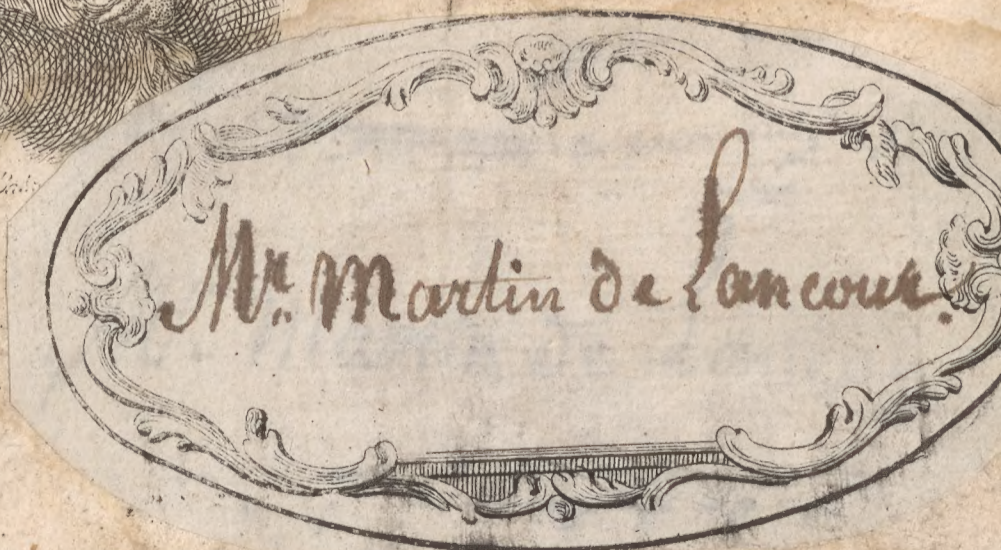 Mr. Martin de Lancour.